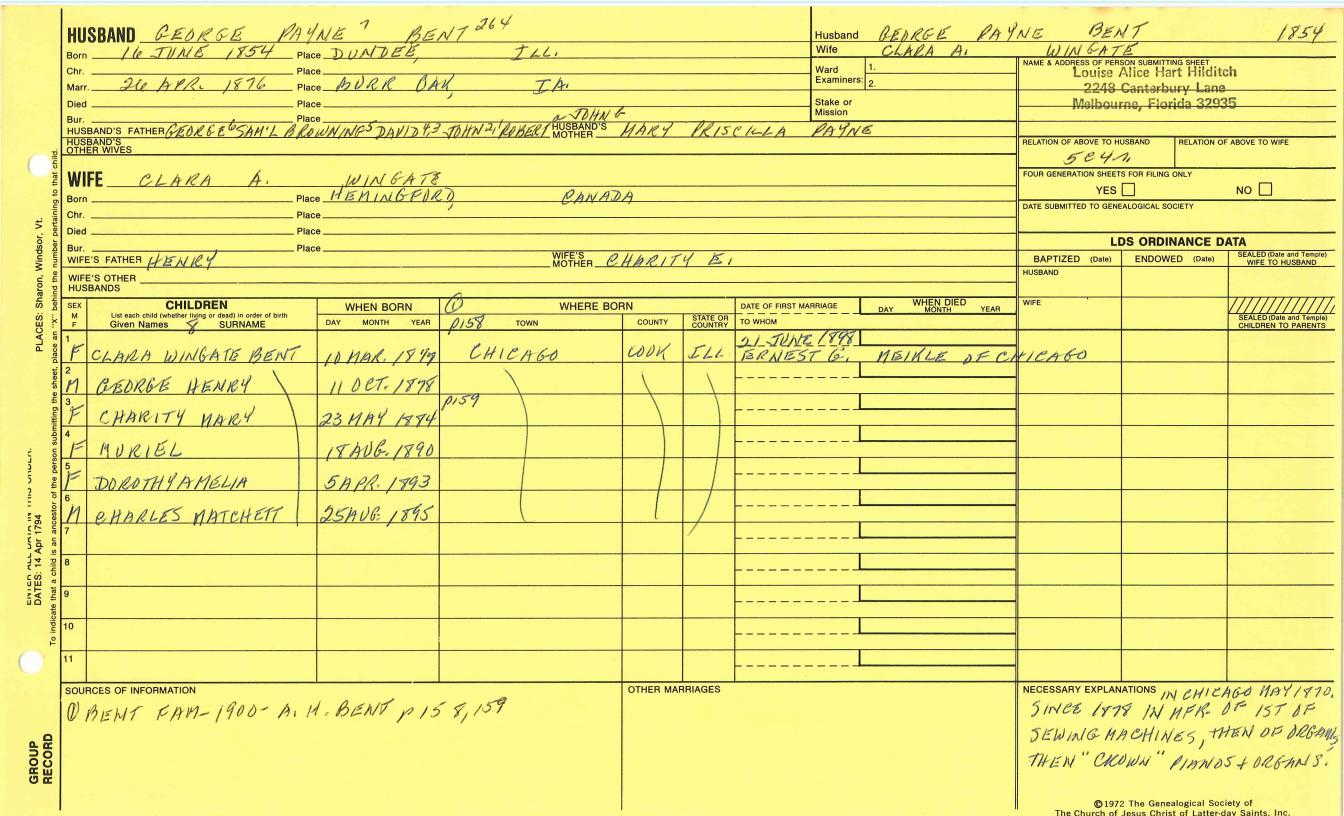 HUSBAND GEORGE PAYNE 7 BENT 264
Born 16 JUNE 1854 Place DUNDEE, ILL.
Chr. Place
Marr. 26 APR. 1876 Place BURR OAK, IA.
Died Place
Bur. Place
HUSBAND'S FATHER GEORGE 6 SAM'L BROWNING 5 DAVID 4 3 JOHN 2 1 ROBERT JOHN HUSBAND'S MOTHER MARY PRISCILLA PAYNE
HUSBAND'S OTHER WIVES
WIFE CLARA A. WINGATE
Born Place HEMINGFORD, CANADA
Chr. Place
Died Place
Bur. Place
WIFE'S FATHER HENRY WIFE'S MOTHER CHARITY E.
WIFE'S OTHER HUSBANDS
Husband GEORGE PAYNE BENT 1854
Wife CLARA A. WINGATE
Ward Examiners: 1.
2.
Stake or Mission
NAME & ADDRESS OF PERSON SUBMITTING SHEET
Louise Alice Hart Hilditch
2248 Canterbury Lane
Melbourne, Florida 32935
RELATION OF ABOVE TO HUSBAND RELATION OF ABOVE TO WIFE
5C4R
FOUR GENERATION SHEETS FOR FILING ONLY
YES NO
DATE SUBMITTED TO GENEALOGICAL SOCIETY
LDS ORDINANCE DATA
BAPTIZED (Date) ENDOWED (Date) SEALED (Date and Temple) WIFE TO HUSBAND
HUSBAND
WIFE
SEALED (Date and Temple) CHILDREN TO PARENTS
SEX M F
CHILDREN
List each child (whether living or dead) in order of birth
Given Names 8 SURNAME
WHEN BORN
DAY MONTH YEAR
① WHERE BORN
p158 TOWN COUNTY STATE OR COUNTRY
DATE OF FIRST MARRIAGE
TO WHOM
WHEN DIED
DAY MONTH YEAR
21 JUNE 1898
1 F CLARA WINGATE BENT 10 MAR. 1877 CHICAGO COOK ILL ERNEST G. MEIKLE OF CHICAGO
2 M GEORGE HENRY 11 OCT. 1878
p159
3 F CHARITY MARY 23 MAY 1884
4 F MURIEL 18 AUG. 1890
5 F DOROTHY AMELIA 5 APR. 1893
6 M CHARLES MATCHETT 25 AUG. 1895
7
8
9
10
11
SOURCES OF INFORMATION
① BENT FAM- 1900- A. H. BENT p158,159
OTHER MARRIAGES
NECESSARY EXPLANATIONS IN CHICAGO MAY 1870.
SINCE 1878 IN MFR. OF 1ST OF
SEWING MACHINES, THEN OF ORGANS,
THEN "CROWN" PIANOS & ORGANS.
©1972 The Genealogical Society of
The Church of Jesus Christ of Latter-day Saints, Inc.
PLACES: Sharon, Windsor, Vt.
DATES: 14 Apr 1794
ENTER ALL DATA IN THIS ORDER:
To indicate that a child is an ancestor of the person submitting the sheet, place an "X" behind the number pertaining to that child.
GROUP RECORD